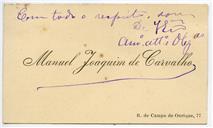 Com todo o respeito, sou
De V. Ex.
Am.º att.º Obg.do
Manuel Joaquim de Carvalho
R. de Campo de Ourique, 77